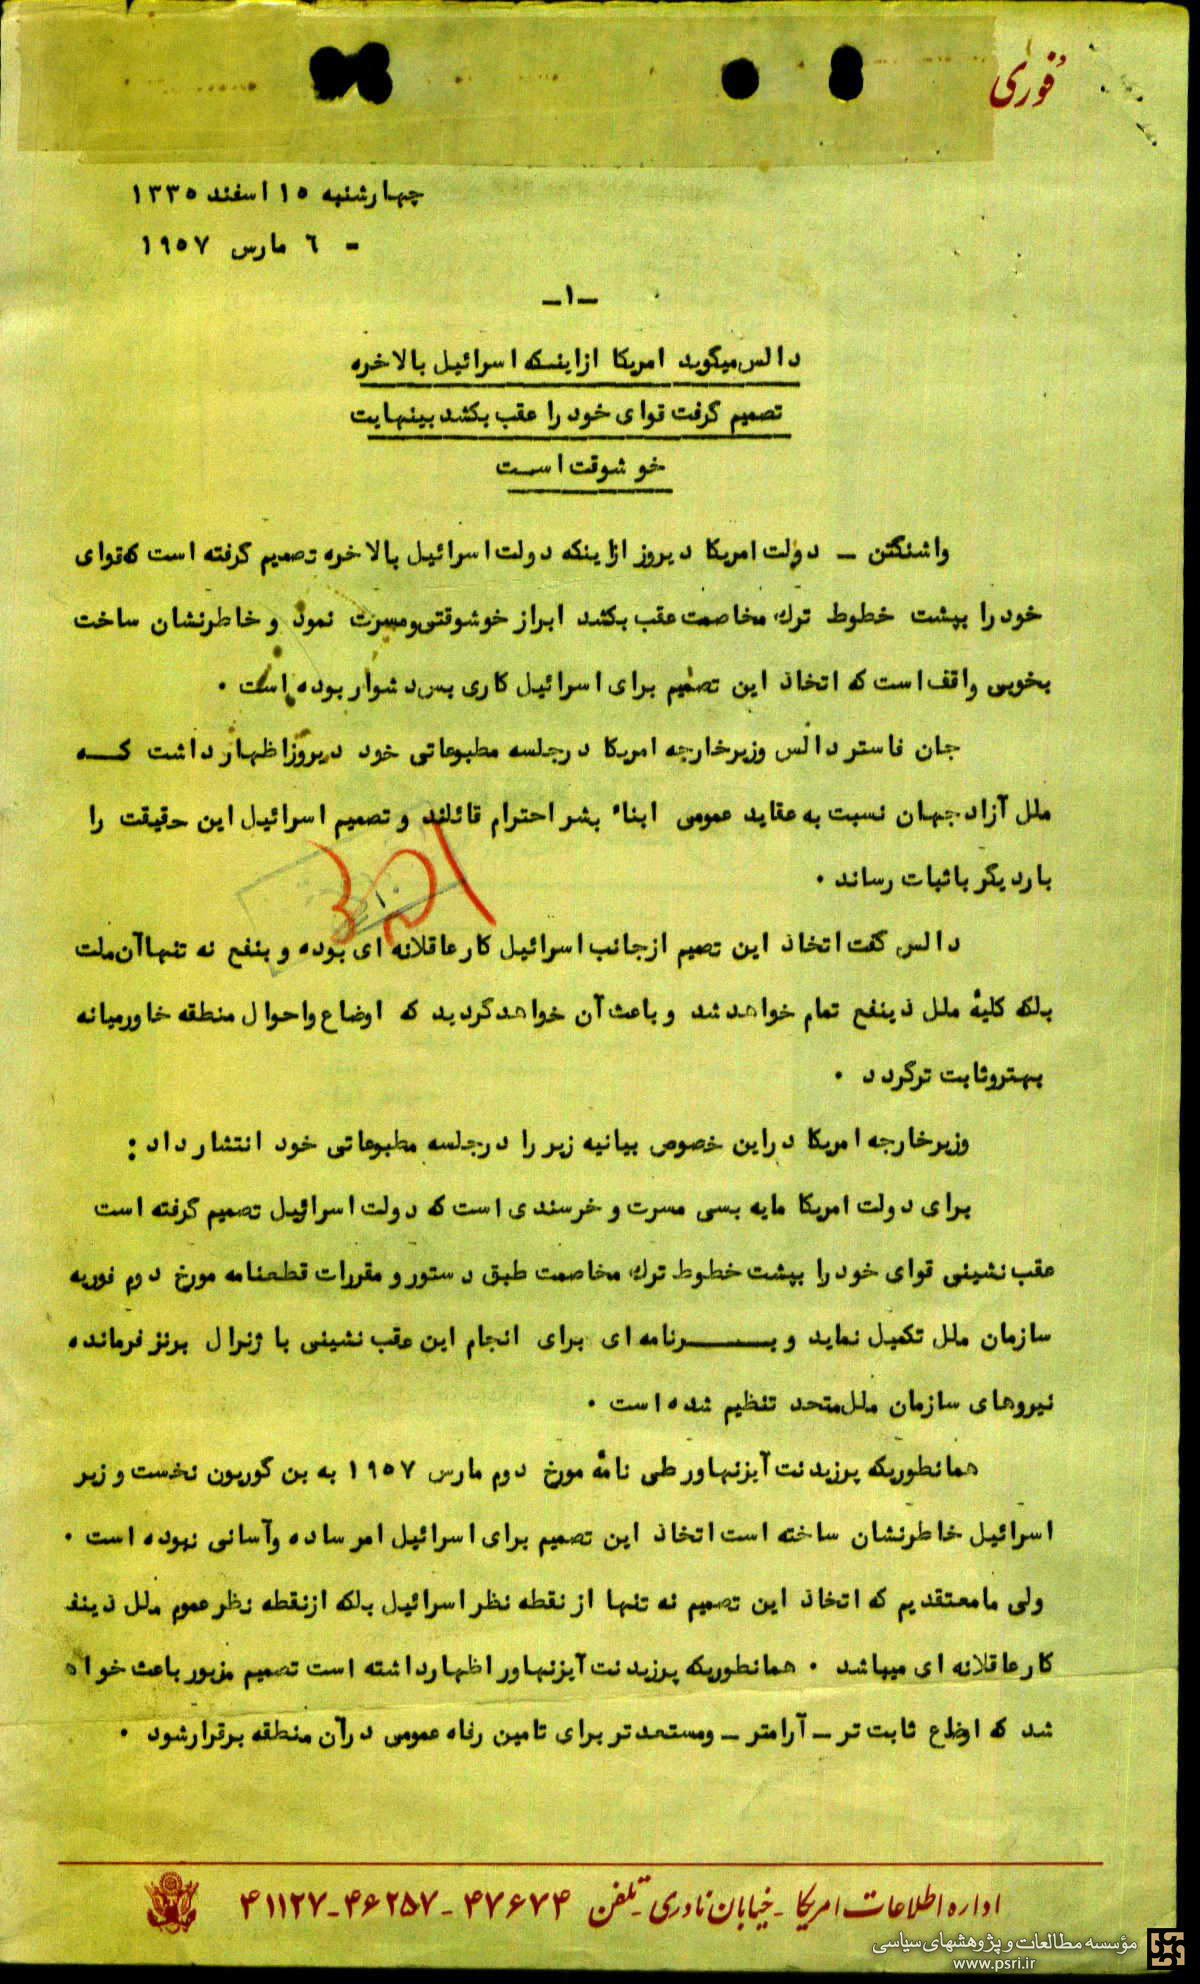 فوری
چهارشنبه ۱۵ اسفند ۱۳۳۵
- ۶ مارس ۱۹۵۷
-۱-
دالس میگوید امریکا از اینکه اسرائیل بالاخره
تصمیم گرفت قوای خود را عقب بکشد بینهایت
خوشوقت است
واشنگتن - دولت امریکا دیروز ازاینکه دولت اسرائیل بالاخره تصمیم گرفته است که قوای
خود را بپشت خطوط ترک مخاصمت عقب بکشد ابراز خوشوقتی و مسرت نمود و خاطرنشان ساخت
بخوبی واقف است که اتخاذ این تصمیم برای اسرائیل کاری بس دشوار بوده است .
جان فاستر دالس وزیرخارجه امریکا درجلسه مطبوعاتی خود دیروز اظهار داشت کــه
ملل آزاد جهان نسبت به عقاید عمومی ابناء بشر احترام قائلند و تصمیم اسرائیل این حقیقت را
باردیگر باثبات رساند .
دالس گفت اتخاذ این تصمیم ازجانب اسرائیل کار عاقلانه ای بوده و بنفع نه تنها آن ملت
بلکه کلیهٔ ملل ذینفع تمام خواهد شد و باعث آن خواهد گردید که اوضاع واحوال منطقه خاورمیانه
بهتر وثابت تر گردد .
وزیرخارجه امریکا دراین خصوص بیانیه زیر را درجلسه مطبوعاتی خود انتشار داد :
برای دولت امریکا مایه بسی مسرت و خرسندی است که دولت اسرائیل تصمیم گرفته است
عقب نشینی قوای خود را بپشت خطوط ترک مخاصمت طبق دستور و مقررات قطعنامه مورخ دوم فوریه
سازمان ملل تکمیل نماید و بــــرنامه ای برای انجام این عقب نشینی با ژنرال برنز فرمانده
نیروهای سازمان ملل متحد تنظیم شده است .
همانطوریکه پرزیدنت آیزنهاور طی نامهٔ مورخ دوم مارس ۱۹۵۷ به بن گوریون نخست وزیر
اسرائیل خاطرنشان ساخته است اتخاذ این تصمیم برای اسرائیل امر ساده وآسانی نبوده است .
ولی مامعتقدیم که اتخاذ این تصمیم نه تنها از نقطه نظر اسرائیل بلکه ازنقطه نظر عموم ملل ذینف
کار عاقلانه ای میباشد . همانطوریکه پرزیدنت آیزنهاور اظهار داشته است تصمیم مزبور باعث خواه
شد که اوضاع ثابت تر - آرامتر - ومستعد تر برای تامین رفاه عمومی درآن منطقه برقرار شود .
اداره اطلاعات امریکا - خیابان نادری - تلفن ۴۷۶۷۴ - ۴۶۲۵۷ - ۴۱۱۲۷
مؤسسه مطالعات و پژوهشهای سیاسی
www.psri.ir